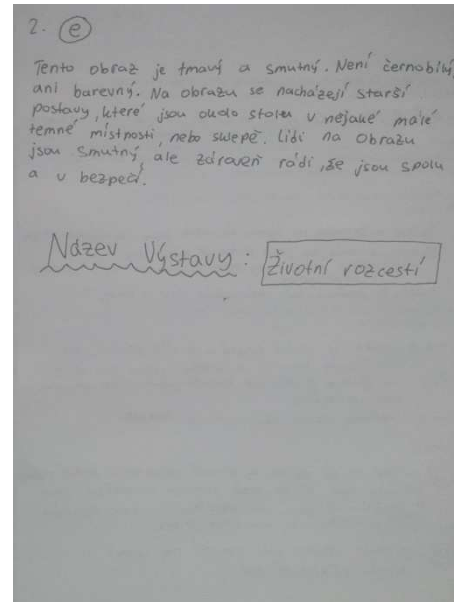 2. e
Tento obraz je tmavý a smutný. Není černobílý,
ani barevný. Na obrazu se nacházejí starší
postavy, které jsou okolo stolu v nejaké malé
temné místnosti, nebo sklepě. Lidi na obrazu
jsou smutný, ale zároveň rádi, že jsou spolu
a v bezpečí.
Název Výstavy: Životní rozcestí